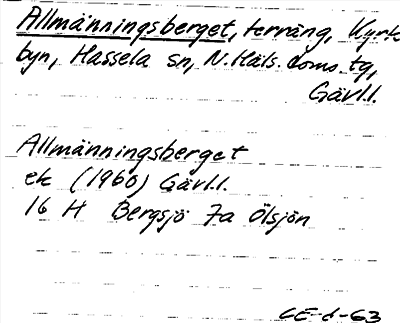 Allmänningsberget, terräng, Kyrk
byn, Hassela sn, N.Häls. doms. tg,
Gävl.l.
Allmänningsberget
ek (1960) Gävl.l.
16 H Bergsjö 7a Ölsjön
CE-d-63